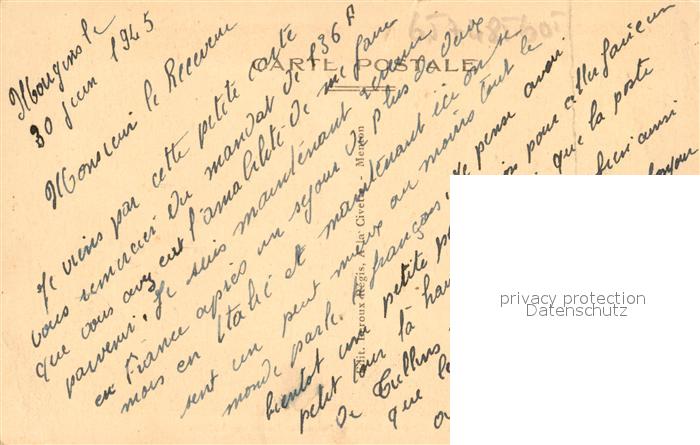 CARTE POSTALE
Mougins le
30 Juin 1945
Monsieur le Receveur
Je viens par cette petite carte
vous remercier du mandat de 136 F
que vous avez eut l'amabilité de me faire
parvenir. Je suis maintenant revenu
en France après un séjour de plus de deux
mois en Italie et maintenant ici on se
sent un peut mieux au moins tout le
monde parle français. Je pense avoir
bientôt une petite pour aller faire un
petit tour là haut que la poste
de Tullins aussi
que le bonjour
Edit. Leroux Régis, A la Civette - Menton
privacy protection
Datenschutz